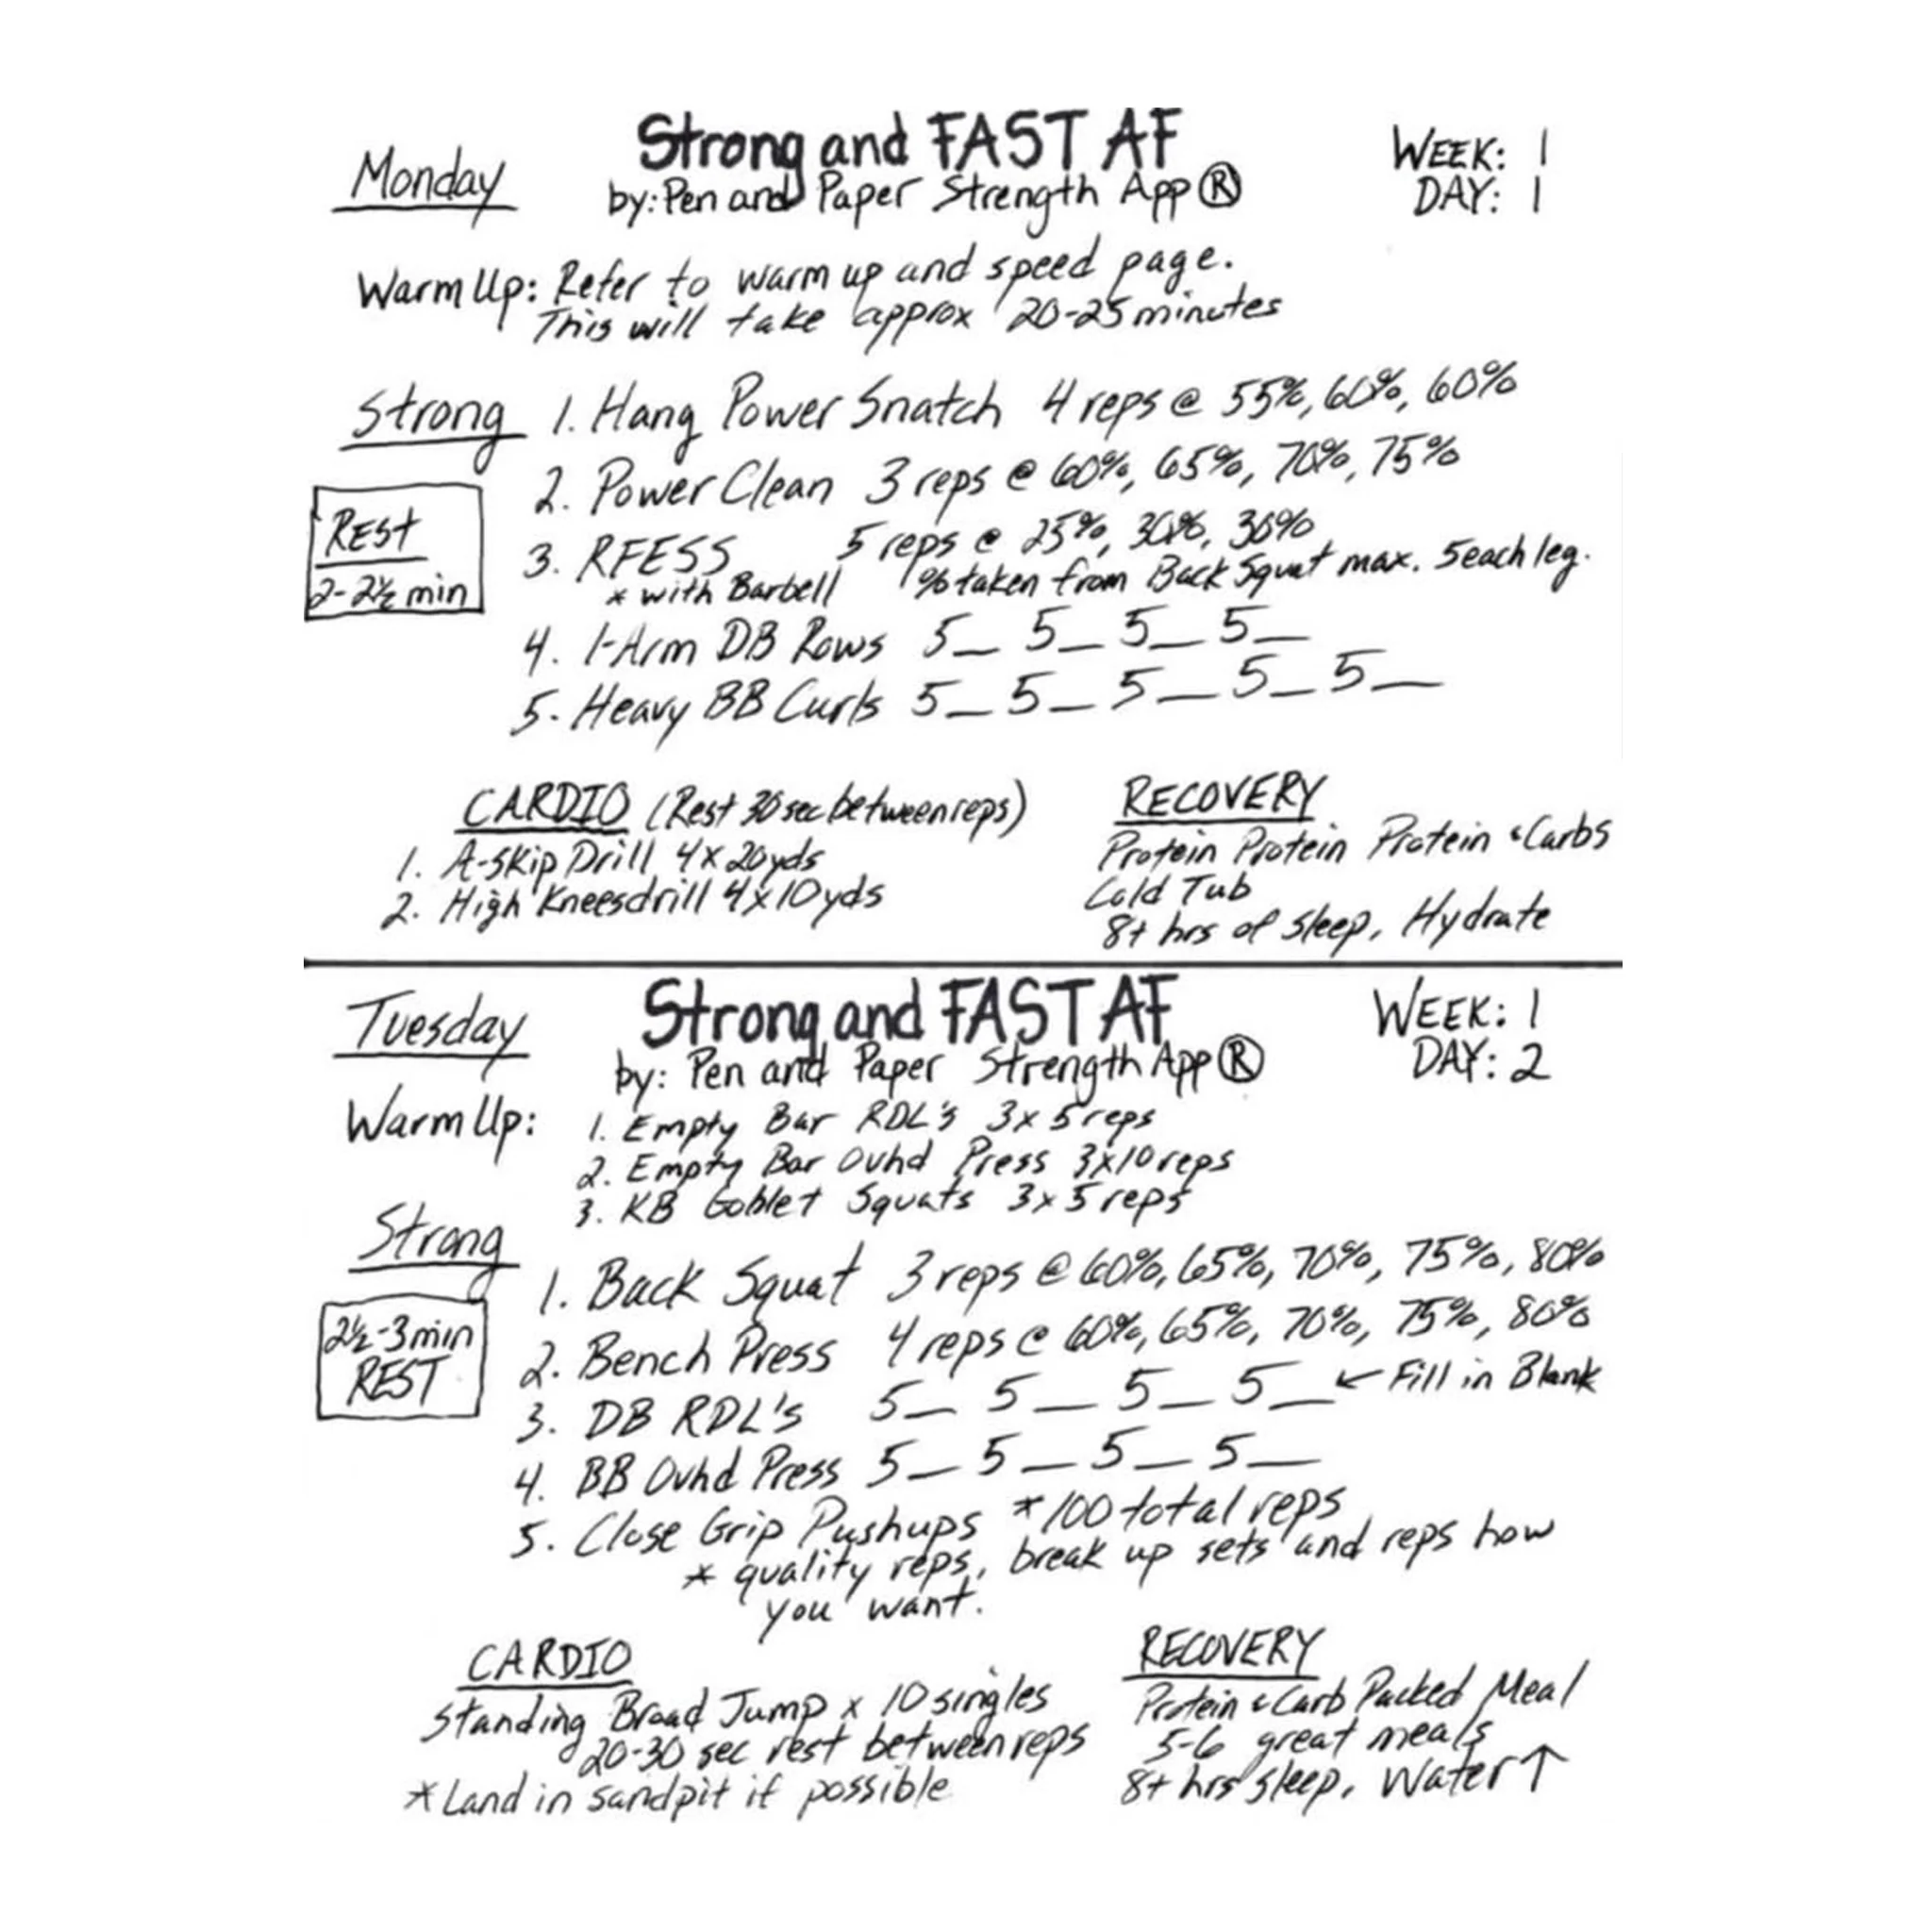 Monday
Strong and FAST AF
by: Pen and Paper Strength App ®
WEEK: 1
DAY: 1
Warm Up: Refer to warm up and speed page.
This will take approx 20-25 minutes
Strong
1. Hang Power Snatch 4 reps @ 55%, 60%, 60%
2. Power Clean 3 reps @ 60%, 65%, 70%, 75%
REST
2-2½ min
3. RFESS 5 reps @ 25%, 30%, 30%
* with Barbell % taken from Back Squat max. 5 each leg.
4. 1-Arm DB Rows 5_ 5_ 5_ 5_
5. Heavy BB Curls 5_ 5_ 5_ 5_ 5_
CARDIO (Rest 30 sec between reps)
1. A-skip Drill 4x20yds
2. High Knees drill 4x10yds
RECOVERY
Protein Protein Protein & Carbs
Cold Tub
8+ hrs of sleep, Hydrate
Tuesday
Strong and FAST AF
by: Pen and Paper Strength App ®
WEEK: 1
DAY: 2
Warm Up: 1. Empty Bar RDL's 3x5 reps
2. Empty Bar Ovhd Press 3x10 reps
3. KB Goblet Squats 3x5 reps
Strong
1. Back Squat 3 reps @ 60%, 65%, 70%, 75%, 80%
2½-3 min
REST
2. Bench Press 4 reps @ 60%, 65%, 70%, 75%, 80%
3. DB RDL's 5_ 5_ 5_ 5_ ← Fill in Blank
4. BB Ovhd Press 5_ 5_ 5_ 5_
5. Close Grip Pushups * 100 total reps
* quality reps, break up sets and reps how
you want.
CARDIO
Standing Broad Jump x 10 singles
20-30 sec rest between reps
* Land in sandpit if possible
RECOVERY
Protein & Carb Packed Meal
5-6 great meals
8+ hrs sleep, Water ↑